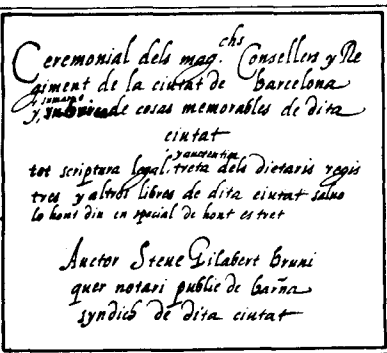 Ceremonial dels mag.chs Consellers y Re
giment de la ciutat de Barcelona
y, sumari de cosas memorables de dita
ciutat
tot scriptura legal, y autentica treta dels dietaris regis
tres y altros libres de dita ciutat saluo
lo hont diu en special de hont es tret
Auctor Steue Gilabert Bruni
quer notari public de barna
syndich de dita ciutat